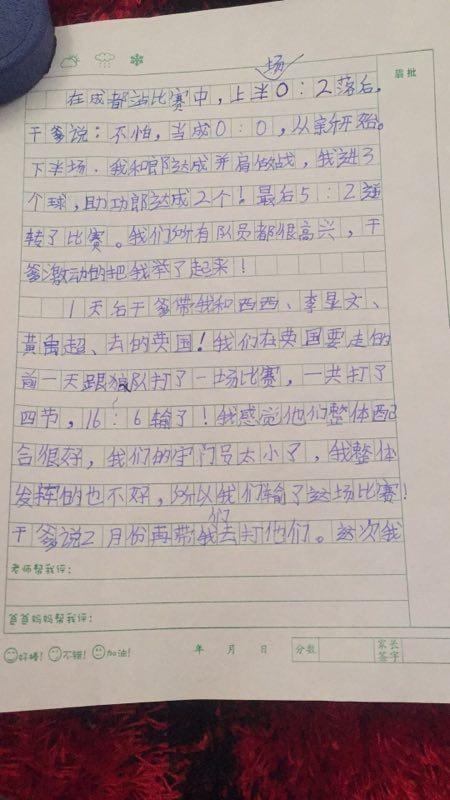 眉批
场
在成都站比赛中，上半0：2落后。
干爹说：不怕，当成0：0，从新开始。
下半场，我和郎达成并肩做战，我进3
个球，助功郎达成2个！最后5：2逆
转了比赛。我们所有队员都很高兴，干
爹激动的把我举了起来！
1天后干爹带我和西西、李星文、
黄禹超、去的英国！我们在英国要走的
前一天跟狼队打了一场比赛，一共打了
四节，16：6输了！我感觉他们整体配
合很好，我们的守门员太小了，我整体
发挥的也不好，所以我们输了这场比赛！
们
干爹说2月份再带我去打他们。这次我
老师帮我评：
爸爸妈妈帮我评：
好棒！ 不错！ 加油！ 年 月 日 分数 家长签字